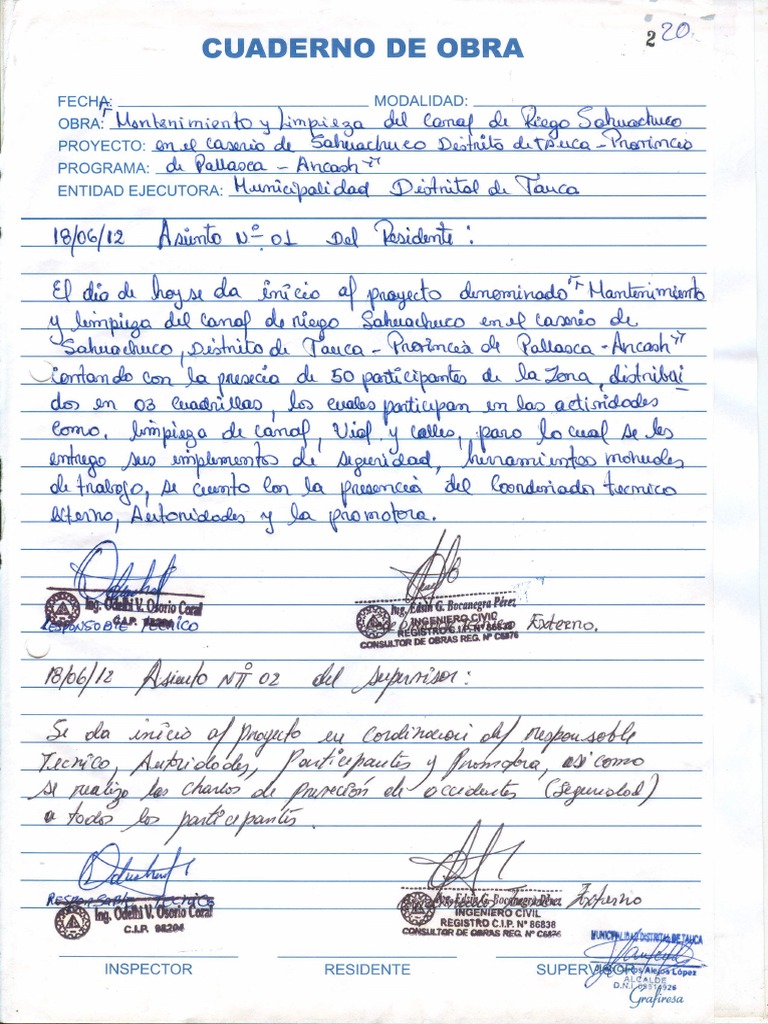 CUADERNO DE OBRA
2 20
FECHA: MODALIDAD:
OBRA: "Mantenimiento y Limpieza del Canal de Riego Sahuachuco
PROYECTO: en el caserio de Sahuachuco Distrito de Tauca - Provincia
PROGRAMA: de Pallasca - Ancash"
ENTIDAD EJECUTORA: Municipalidad Distrital de Tauca
18/06/12 Asiento Nº 01 Del Residente:
El dia de hoy se da inicio al proyecto denominado "Mantenimiento
y limpieza del canal de riego Sahuachuco en el caserio de
Sahuachuco, Distrito de Tauca - Provincia de Pallasca - Ancash"
contando con la presecia de 50 participantes de la Zona, distribui
dos en 03 cuadrillas, los cuales participan en las actividades
como. limpieza de canal, Vial y calles, para lo cual se les
entrego sus implementos de seguridad, herramientas manuales
de trabajo, se cuenta con la presencia del Coordinador tecnico
Externo, Autoridades y la promotora.
Ing. Odelhi V. Osorio Coral
C.I.P. 98204
RESPONSABLE TECNICO
Ing. Edsin G. Bocanegra Pérez
INGENIERO CIVIL
REGISTRO C.I.P. Nº 86838
CONSULTOR DE OBRAS REG. Nº C6876
Externo.
18/06/12 Asiento Nº 02 del supervisor:
Se da inicio al proyecto en cordinacion del responsable
Tecnico, Autoridades, Participantes y Promotora, asi como
se realizo las charlas de preveción de accidentes (Seguridad)
a todos los participantes.
RESPONSABLE TECNICO
Ing. Odelhi V. Osorio Coral
C.I.P. 98204
Ing. Edsin G. Bocanegra Pérez
Externo
INGENIERO CIVIL
REGISTRO C.I.P. Nº 86838
CONSULTOR DE OBRAS REG. Nº C6876
MUNICIPALIDAD DISTRITAL DE TAUCA
INSPECTOR RESIDENTE SUPERVISOR
Alejos López
ALCALDE
Grafiresa